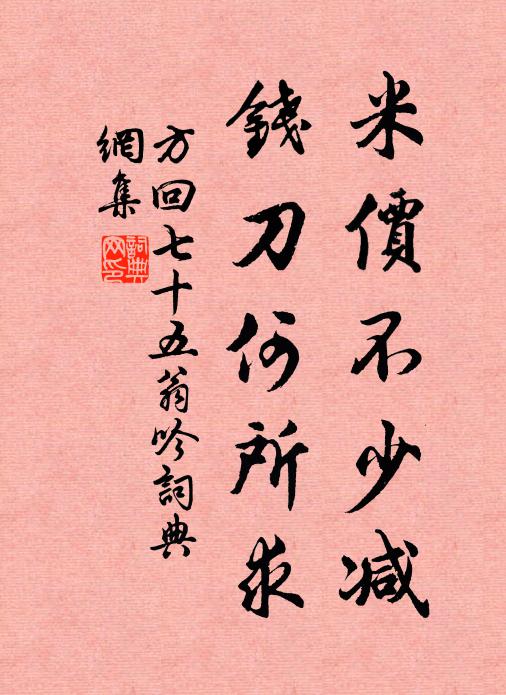 米價不少減
錢刀何所求
方回七十五翁吟詞典
網集
詞典
网印